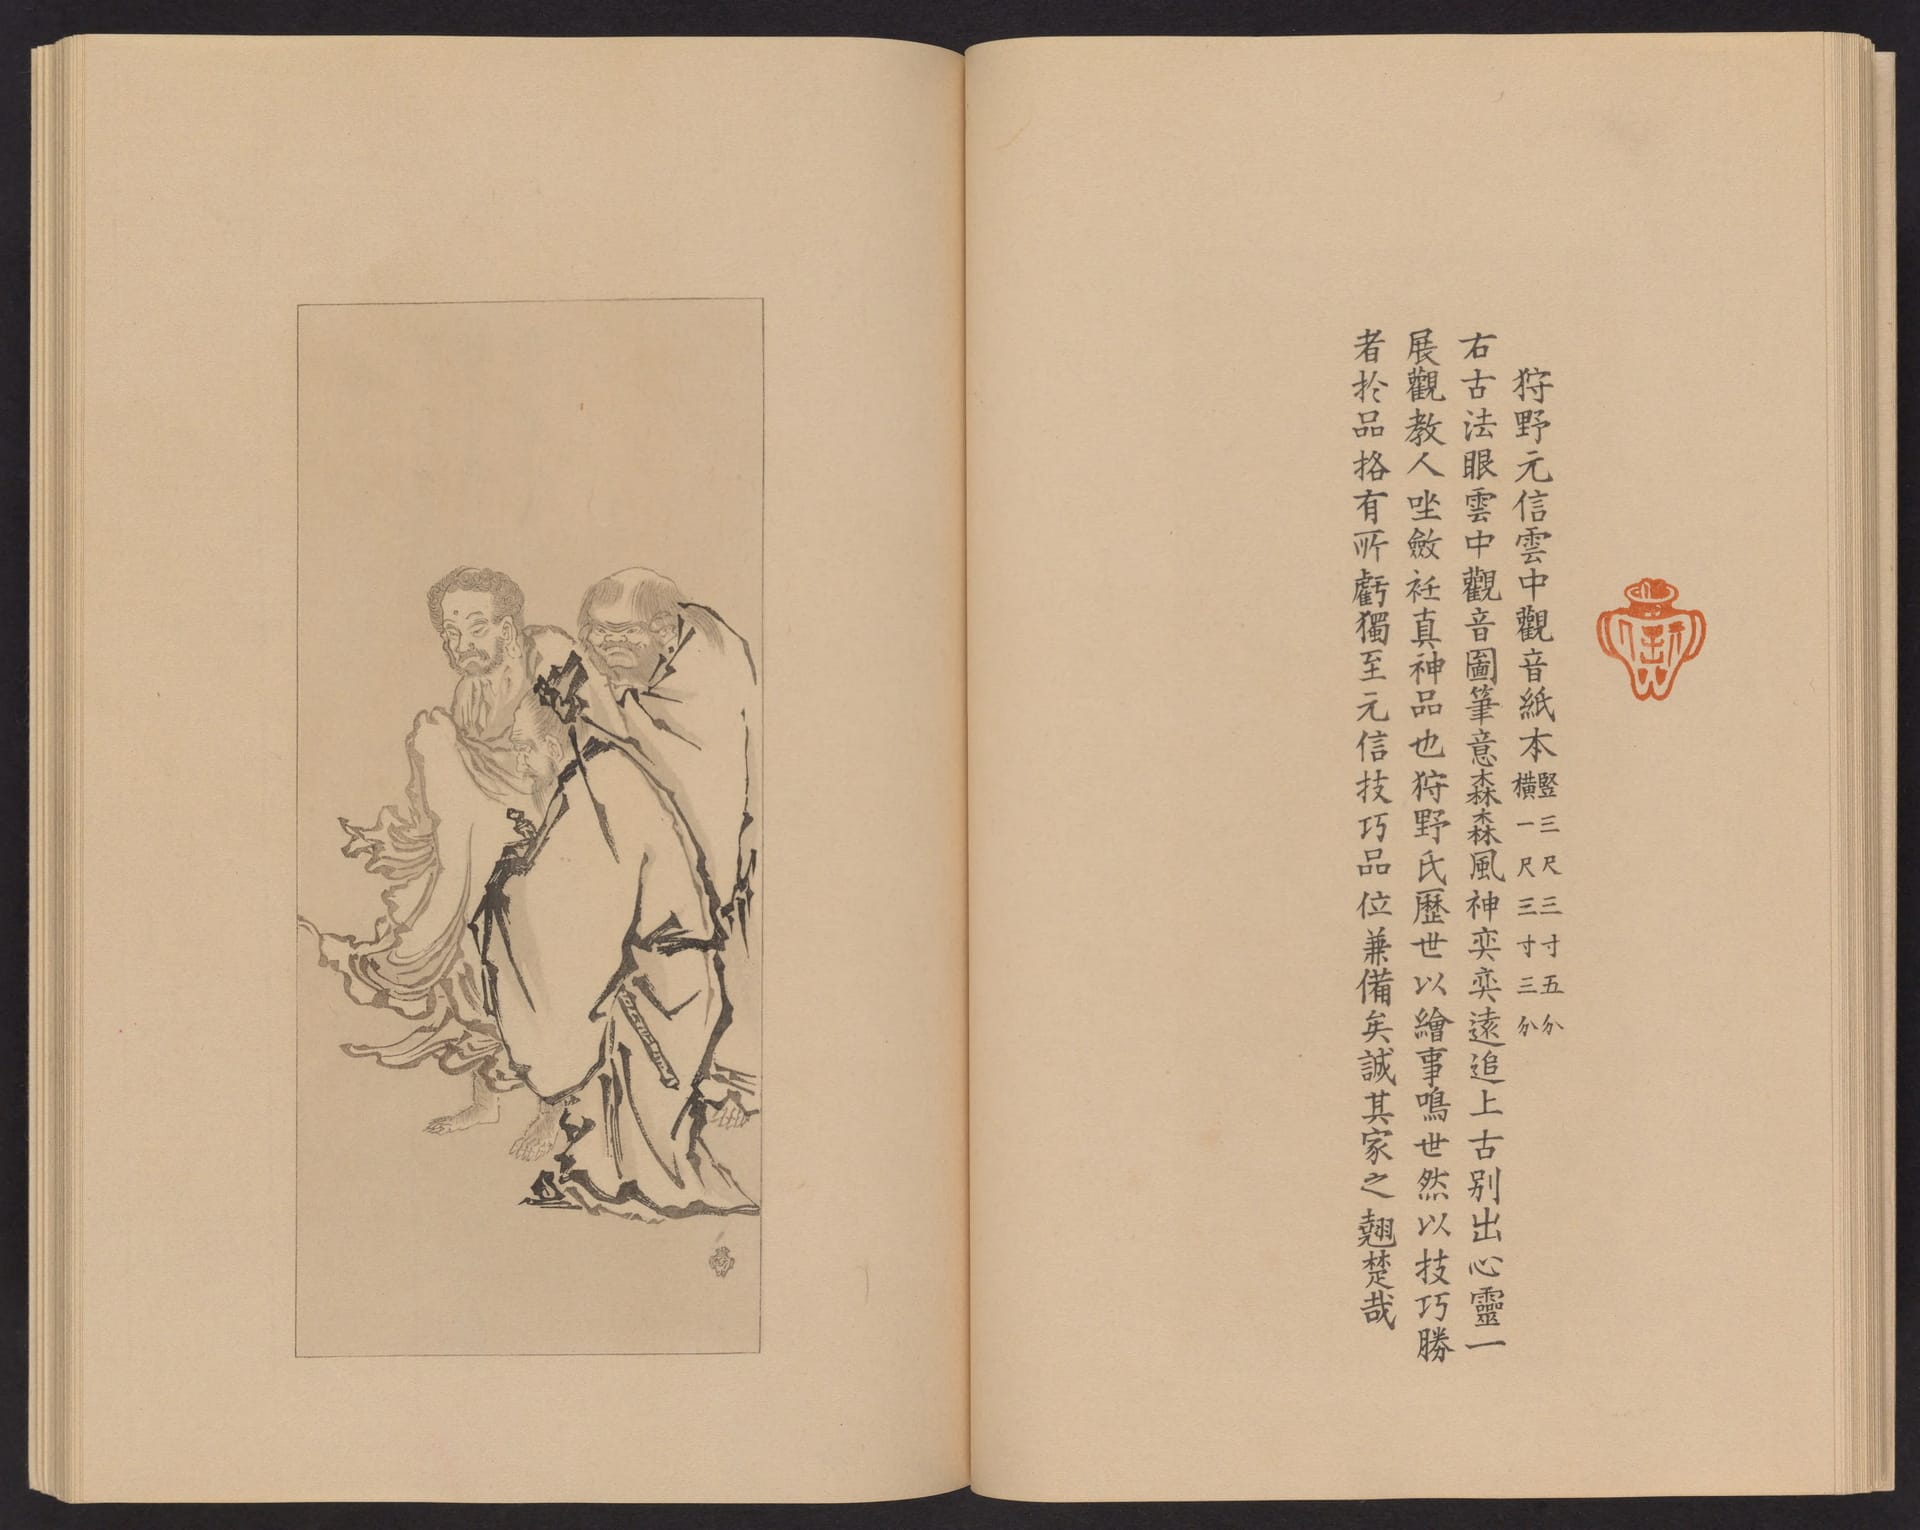 狩野元信雲中觀音紙本 竪三尺三寸五分
橫一尺三寸三分
右古法眼雲中觀音圖筆意森森風神奕奕遠追上古別出心靈一
展觀教人坐斂衽真神品也狩野氏歷世以繪事鳴世然以技巧勝
者於品格有所虧獨至元信技巧品位兼備矣誠其家之翹楚哉